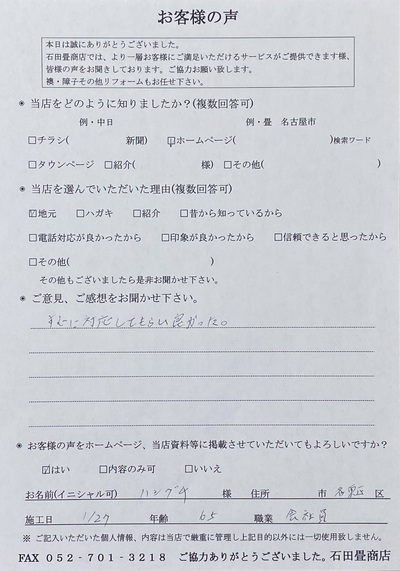 お客様の声
本日は誠にありがとうございました。
石田畳商店では、より一層お客様にご満足いただけるサービスがご提供できます様、
皆様の声をお聞きしております。ご協力お願い致します。
襖・障子その他リフォームもお任せ下さい。
◉ 当店をどのように知りましたか？(複数回答可)
例・中日 例・畳 名古屋市
□チラシ( 新聞) ☑ホームページ( )検索ワード
□タウンページ □紹介( 様) □その他( )
◉ 当店を選んでいただいた理由(複数回答可)
☑地元 □ハガキ □紹介 □昔から知っているから
□電話対応が良かったから □印象が良かったから □信頼できると思ったから
□その他( )
その他もございましたら是非お聞かせ下さい。
◉ ご意見、ご感想をお聞かせ下さい。
すぐに対応してもらい良かった。
◉ お客様の声をホームページ、当店資料等に掲載させていただいてもよろしいですか？
☑はい □内容のみ可 □いいえ
お名前(イニシャル可) 様 住所 市 名東区 区
施工日 1/27 年齢 65 職業 会社員
※ ご記入いただいた個人情報、内容は当店で厳重に管理し上記目的以外には一切使用致しません。
FAX 052-701-3218 ご協力ありがとうございました。石田畳商店